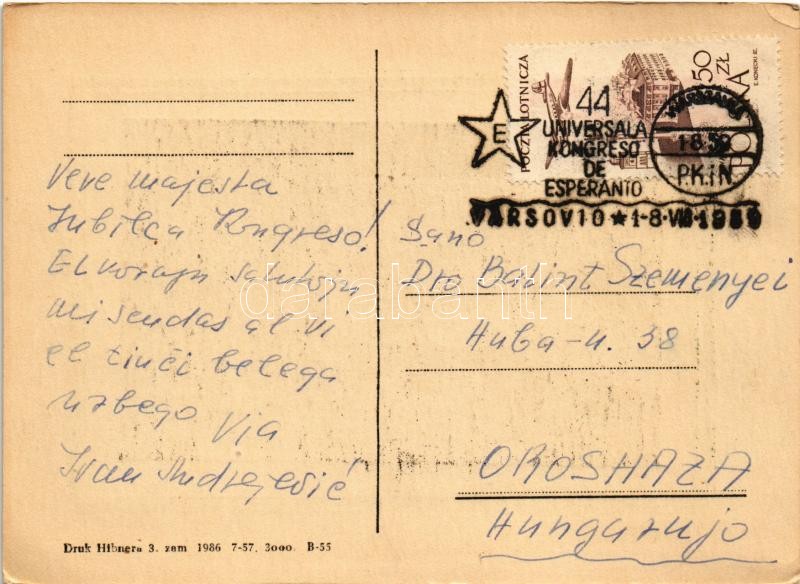 Vere majesta
Jubilea Kongreso!
Elkorajn salutojn
mi sendas al Vi
el tiu ĉi belega
urbego Via
Ivan Andrejević
Druk Hibnera 3. zam 1986 7-57. 3000. B-55
POCZTA LOTNICZA
50 ZŁ
44
E
UNIVERSALA
KONGRESO
DE
ESPERANTO
VARSOVIO ★ 1-8·VIII·1959
WARSZAWA
1·8·59
P.K.iN
Dro Balint Szemenyei
Huba-u. 38
OROSHAZA
Hungarujo
darabanth